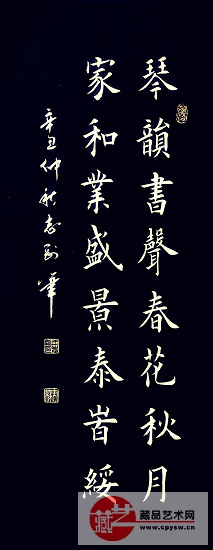 琴韻書聲春花秋月
家和業盛景泰旹綏
辛丑仲秋志剛筆
藏品艺术网
www.cpysw.cn